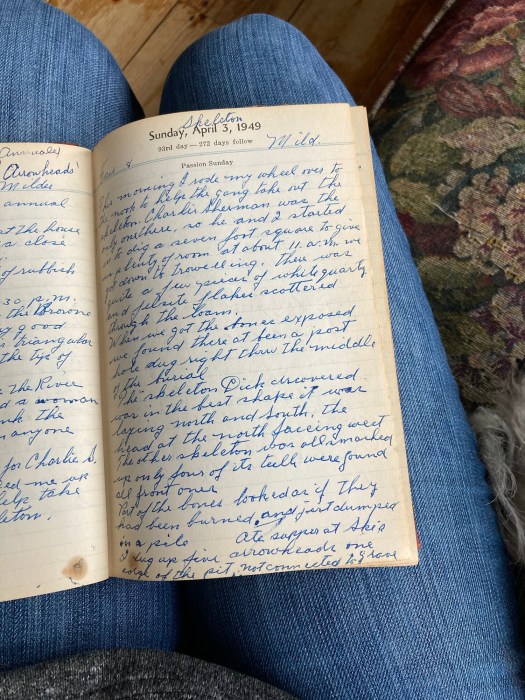 Annual
Arrowheads
Milder
annual
at the house
a close
of rubbish
30 p.m.
the Browne
y good
triangular
the tip of
the River
d a woman
nk the
anyone
for Charlie S.
ed me up
help take
leton.
Skeleton
Sunday, April 3, 1949
93rd day — 272 days follow
Mild.
Passion Sunday
This morning I rode my wheel over to
the nook to help the gang take out the
skeleton. Charlie Sherman was the
only one there, so he and I started
to dig a seven foot square to give
us plenty of room. at about 11. a.m. we
got down to trowelling. There was
quite a few pieces of white quartz
and felsite flakes scattered
through the loam.
When we got the bones exposed
we found there at been a post
hole dug right threw the middle
of the burial.
The skeleton Dick discovered
was in the best shape it was
laying north and south, the
head at the north faceing west
The other skeleton was all smashed
up only four of its teeth were found
all front ones
Part of the bones looked as if they
had been burned, and just dumped
in a pile Ate supper at Ake's
I dug up five arrowheads one
edge of the pit, not connected to grave